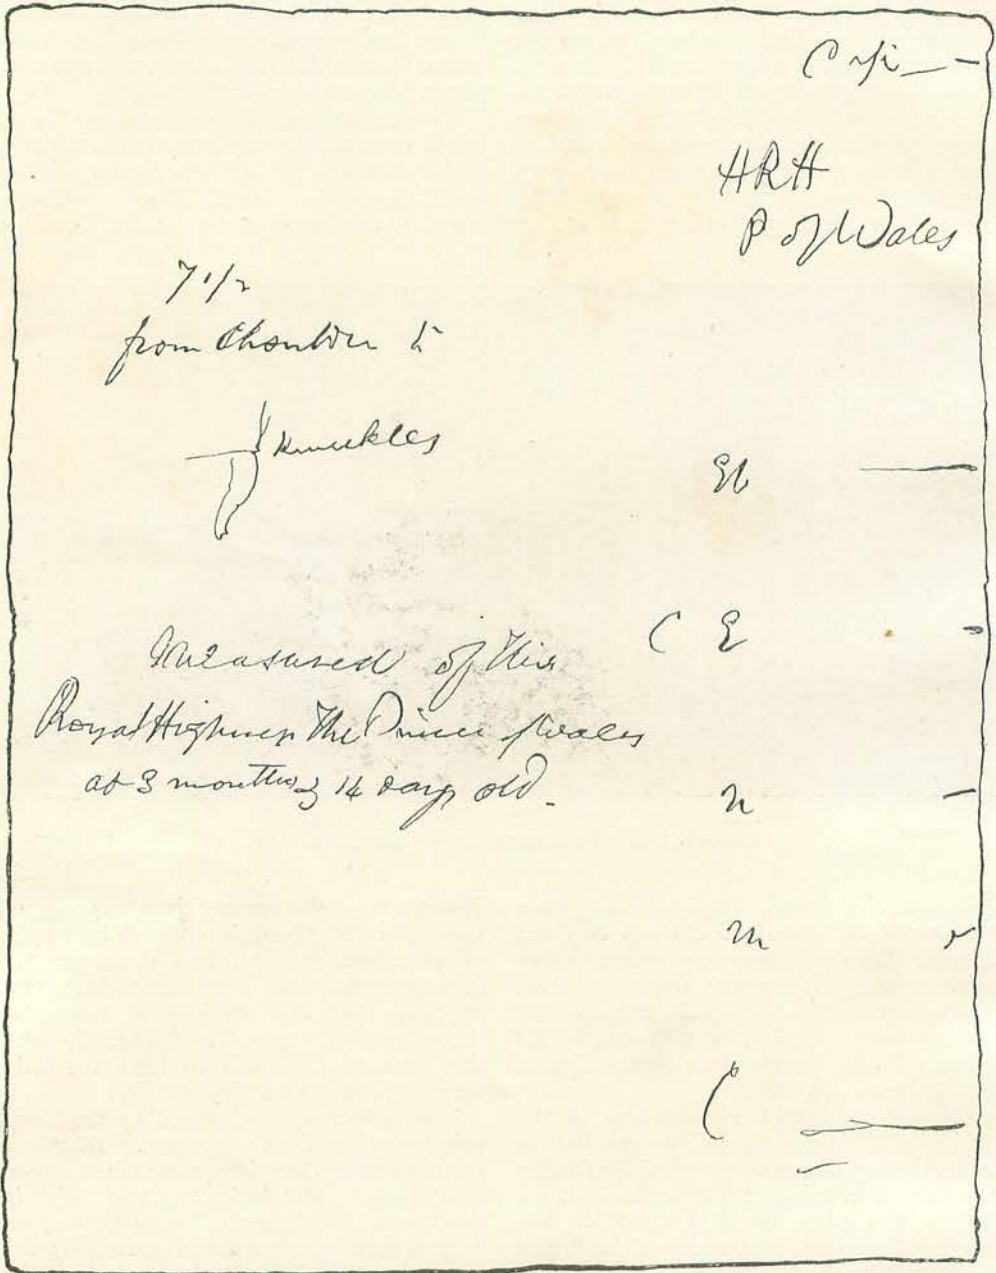 HRH
P of Wales
7 1/2
from Shoulder to
Knuckles
Eb
C E
Measured of His
Royal Highness The Prince of Wales
at 3 months & 14 days old.
n
m
C